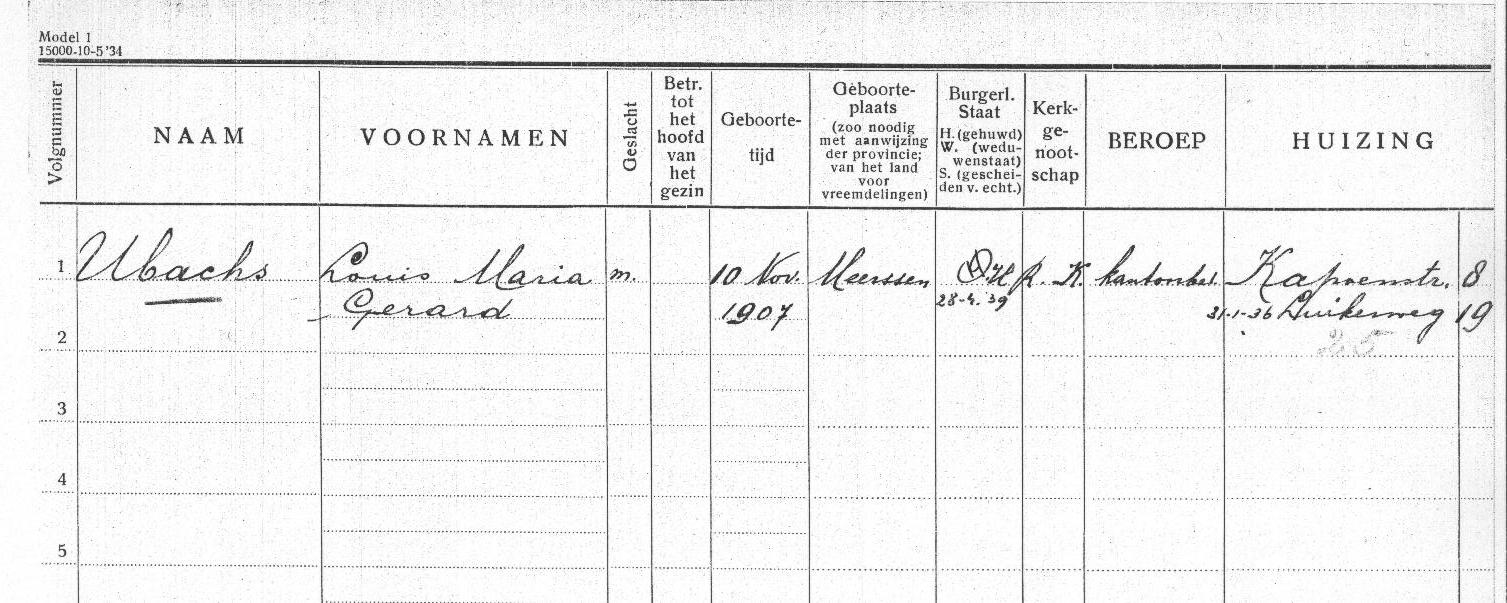 Model 1
15000-10-5 '34
Volgnummer
NAAM
VOORNAMEN
Geslacht
Betr.
tot
het
hoofd
van
het
gezin
Geboorte-
tijd
Geboorte-
plaats
(zoo noodig
met aanwijzing
der provincie;
van het land
voor
vreemdelingen)
Burgerl.
Staat
H. (gehuwd)
W. (wedu-
wenstaat)
S. (geschei-
den v. echt.)
Kerk-
ge-
noot-
schap
BEROEP
HUIZING
1 Ubachs Louis Maria m. 10 Nov. Meerssen O. H R. K. kantoorbed. Kapoenstr. 8
Gerard 1907 28-4.39 31-1-36 Luikerweg 19
2 25
3
4
5